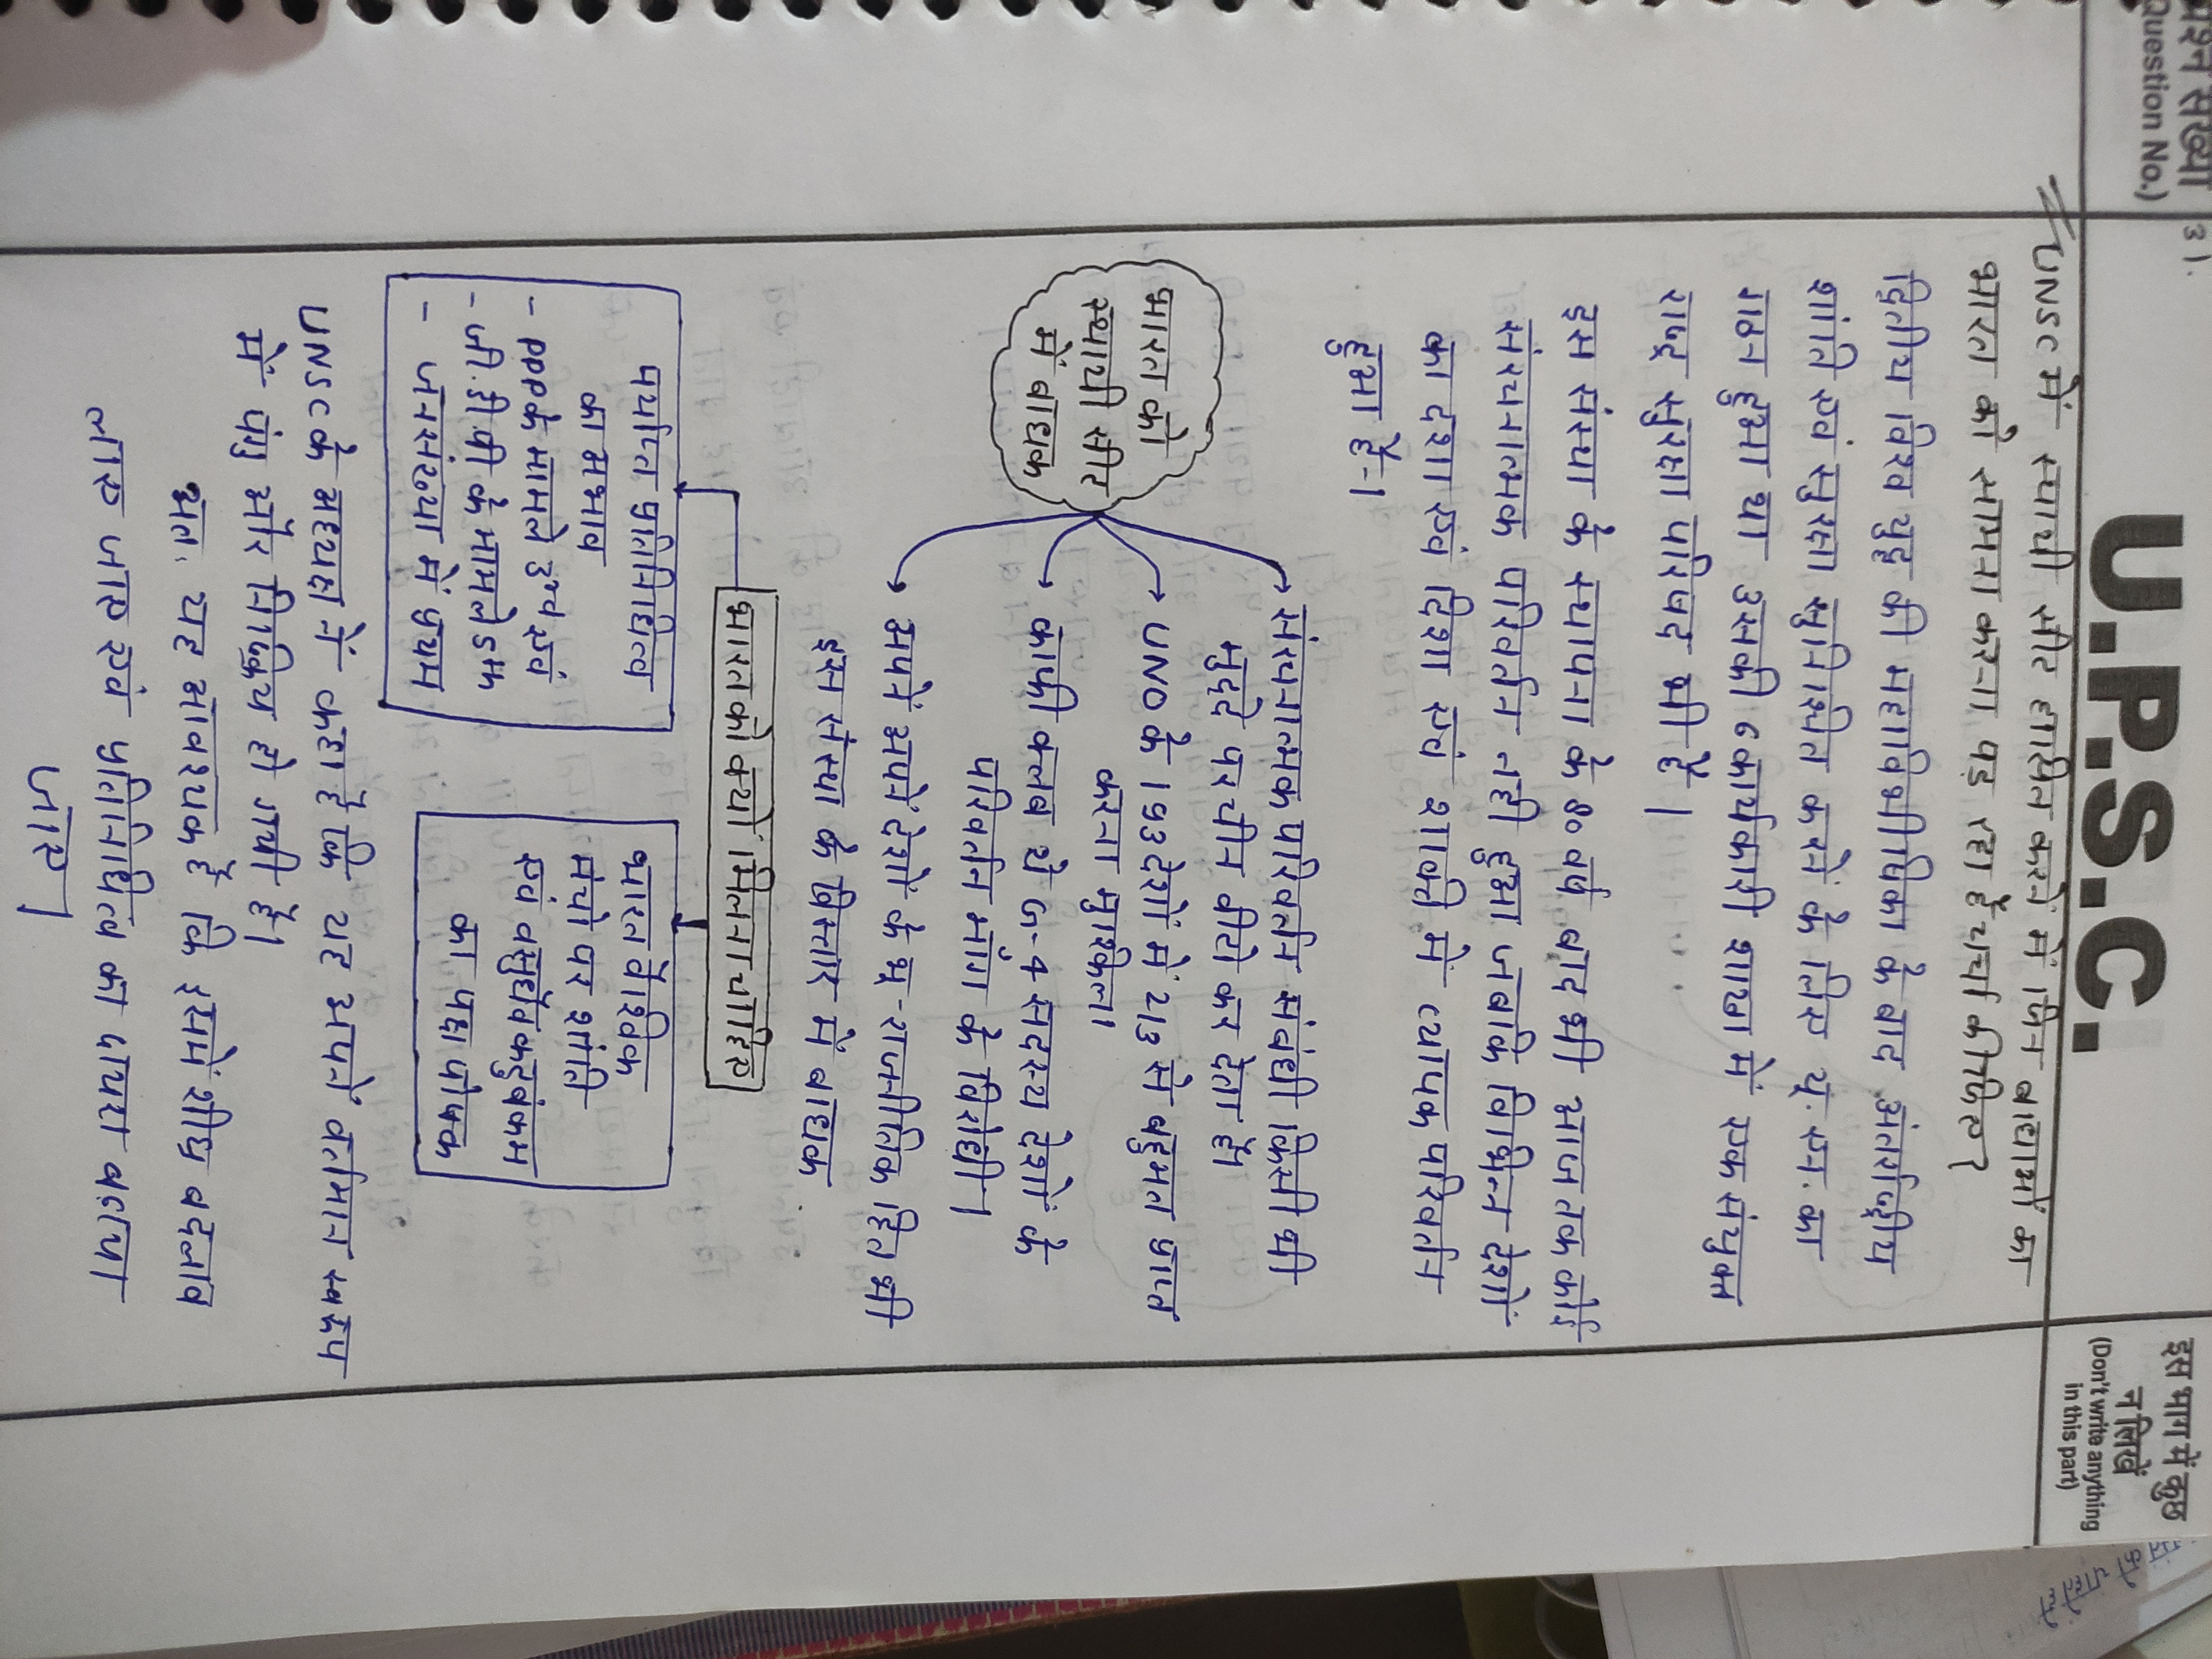 प्रश्न संख्या
(Question No.)
U.P.S.C.
इस भाग में कुछ
न लिखें
(Don't write anything
in this part)
UNSC में स्थायी सीट हासिल करने में जिन बाधाओं का
भारत को सामना करना पड़ रहा है चर्चा कीजिए?
द्वितीय विश्व युद्ध की महाविभीषिका के बाद अंतर्राष्ट्रीय
शांति एवं सुरक्षा सुनिश्चित करने के लिए यू. एन. का
गठन हुआ था उसकी 6 कार्यकारी शाखा में एक संयुक्त
राष्ट्र सुरक्षा परिषद भी है |
इस संस्था के स्थापना के 80 वर्ष बाद भी आज तक कोई
संरचनात्मक परिवर्तन नही हुआ जबकि विभिन्न देशों
का दशा एवं दिशा एवं शक्ति में व्यापक परिवर्तन
हुआ है-।
भारत को
स्थायी सीट
में बाधक
संरचनात्मक परिवर्तन संबंधी किसी भी
मुद्दे पर चीन वीटो कर देता है।
UNO के 193 देशों में 2/3 से बहुमत प्राप्त
करना मुश्किल।
काफी क्लब ये G-4 सदस्य देशों के
परिवर्तन मांग के विरोधी।
अपने अपने देशों के भू-राजनीतिक हित भी
इस संस्था के विस्तार में बाधक
भारत को क्यों मिलना चाहिए
पर्याप्त प्रतिनिधित्व
का अभाव
- PPP के मामले उच्च एवं
- जी.डी.पी के मामले 5th
- जनसंख्या में प्रथम
भारत वैश्विक
मंचो पर शांति
एवं वसुधैवकुटुंबकम
का पक्ष पोषक
UNSC के अध्यक्ष ने कहा है कि यह अपने वर्तमान स्वरूप
में पंगु और निष्क्रिय हो गयी है।
अतः यह आवश्यक है कि इसमें शीघ्र बदलाव
लाए जाए एवं प्रतिनिधित्व का दायरा बढाया
जाए]